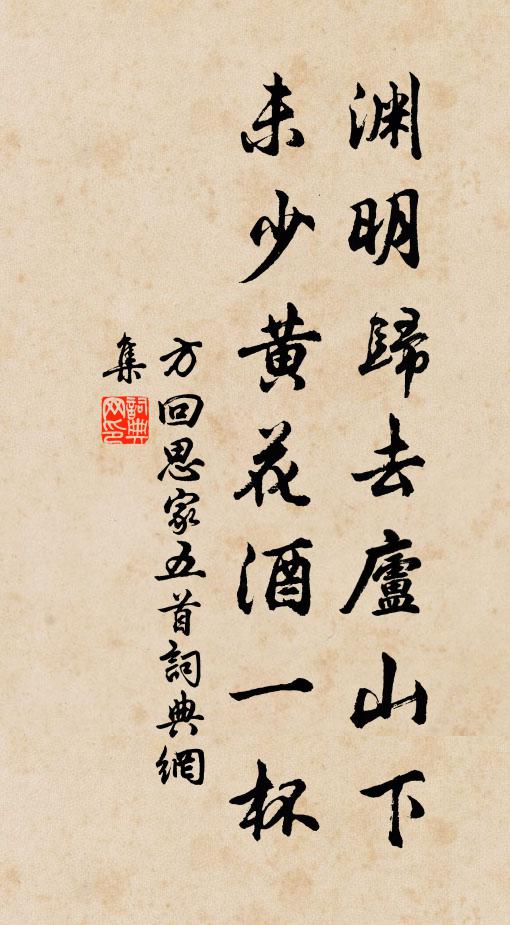 渊明歸去廬山下
未少黄花酒一杯
方回思家五首詞典網
集
詞典網印